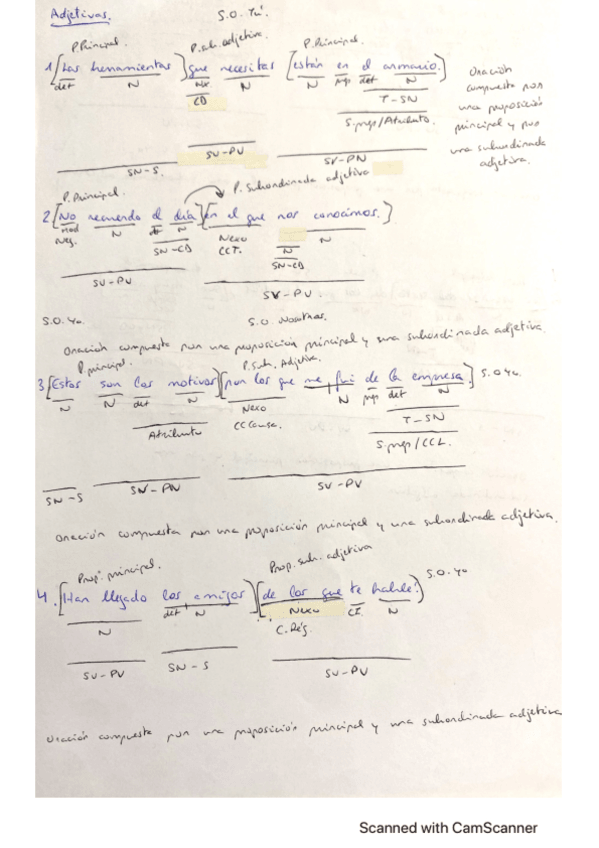 Adjetivas.
S.O. Tú.
P.Principal. P.sub. adjetiva. P.Principal.
1 [Las herramientas] que necesitas [están en el armario.]
det N Nx N N prep det N
CD T-SN
S.prep/Atributo.
SN-S. SV-PV SV-PN
Oración
compuesta por
una proposición
principal y por
una subordinada
adjetiva.
P.Principal. P. Subordinada adjetiva
2 [No recuerdo el día] [en el que nos conocimos.]
mod N dt N Nexo N N
Neg. SN-CD CCT. SN-CD
SV-PV SV-PV.
S.O. Yo. S.O. Nosotros.
Oración compuesta por una proposición principal y una subordinada adjetiva.
P.principal. P.Sub. Adjetiva.
3 [Estos son los motivos] [por los que me fui de la empresa.] S.O Yo.
N N det N Nexo N prep det N
Atributo CCCausa. T-SN
S.prep/CCL.
SN-S SV-PN SV-PV
Oración compuesta por una proposición principal y una subordinada adjetiva.
Prop. principal. Prop. sub. adjetiva
4. [Han llegado los amigos] [de los que te hablé.] S.O. Yo
N det N Nexo CI N
C.Rég.
SV-PV SN-S SV-PV
Oración compuesta por una proposición principal y una subordinada adjetiva
Scanned with CamScanner